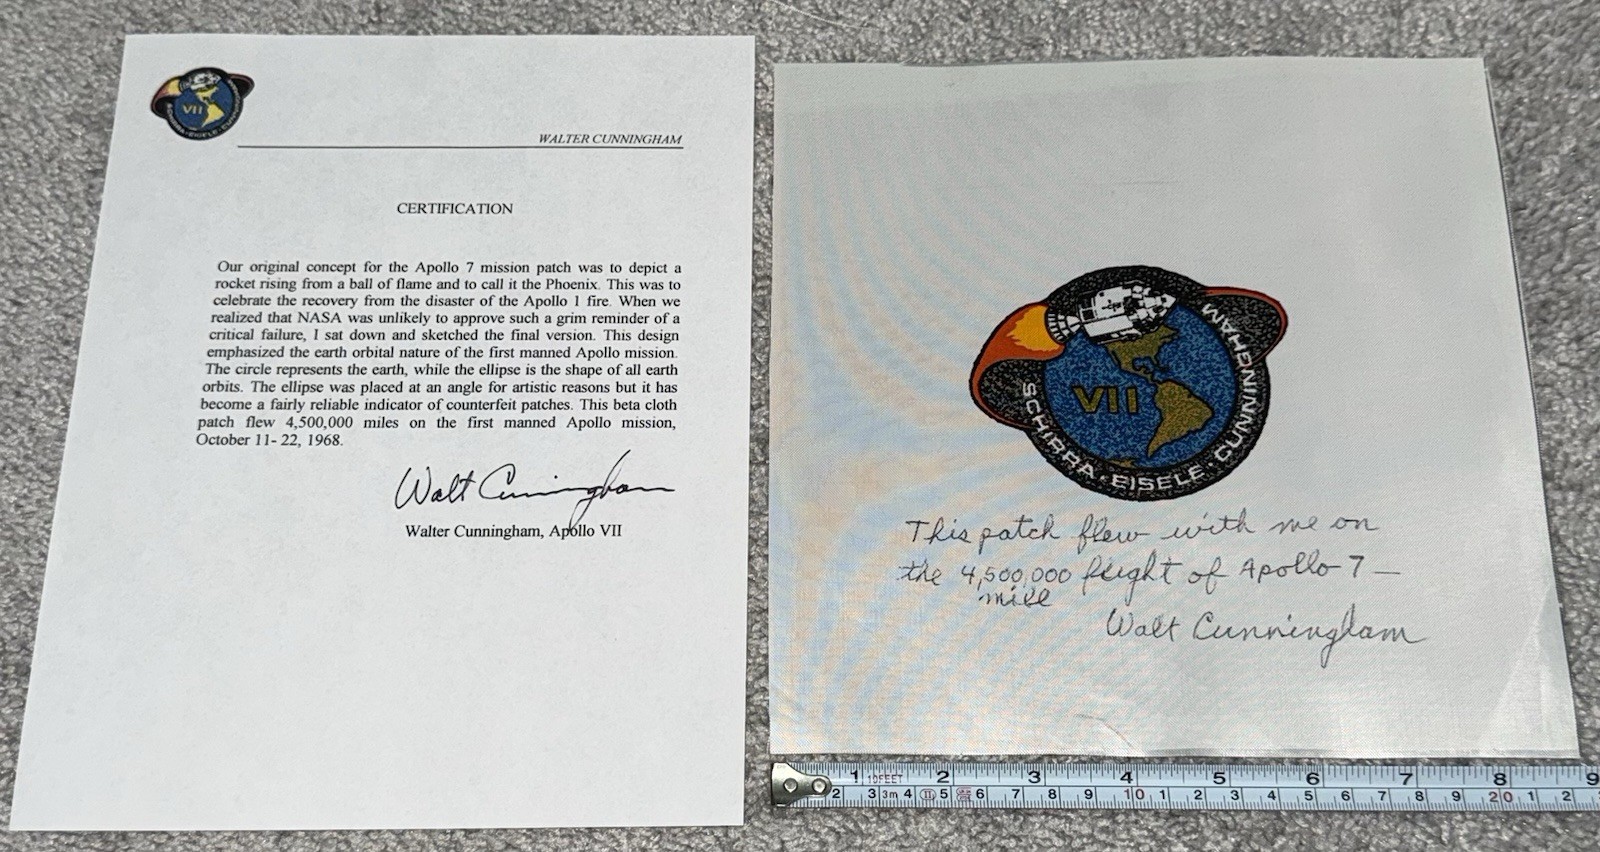 VII
SCHIRRA · EISELE · CUNNINGHAM
WALTER CUNNINGHAM
CERTIFICATION
Our original concept for the Apollo 7 mission patch was to depict a
rocket rising from a ball of flame and to call it the Phoenix. This was to
celebrate the recovery from the disaster of the Apollo 1 fire. When we
realized that NASA was unlikely to approve such a grim reminder of a
critical failure, I sat down and sketched the final version. This design
emphasized the earth orbital nature of the first manned Apollo mission.
The circle represents the earth, while the ellipse is the shape of all earth
orbits. The ellipse was placed at an angle for artistic reasons but it has
become a fairly reliable indicator of counterfeit patches. This beta cloth
patch flew 4,500,000 miles on the first manned Apollo mission,
October 11- 22, 1968.
Walt Cunningham
Walter Cunningham, Apollo VII
VII
SCHIRRA · EISELE · CUNNINGHAM
This patch flew with me on
the 4,500,000 flight of Apollo 7 —
mile
Walt Cunningham
1 10FEET 2 3 4 5 6 7 8 9
2 3 3m 4 5 6 7 8 9 10 1 2 3 4 5 6 7 8 9 20 1 2